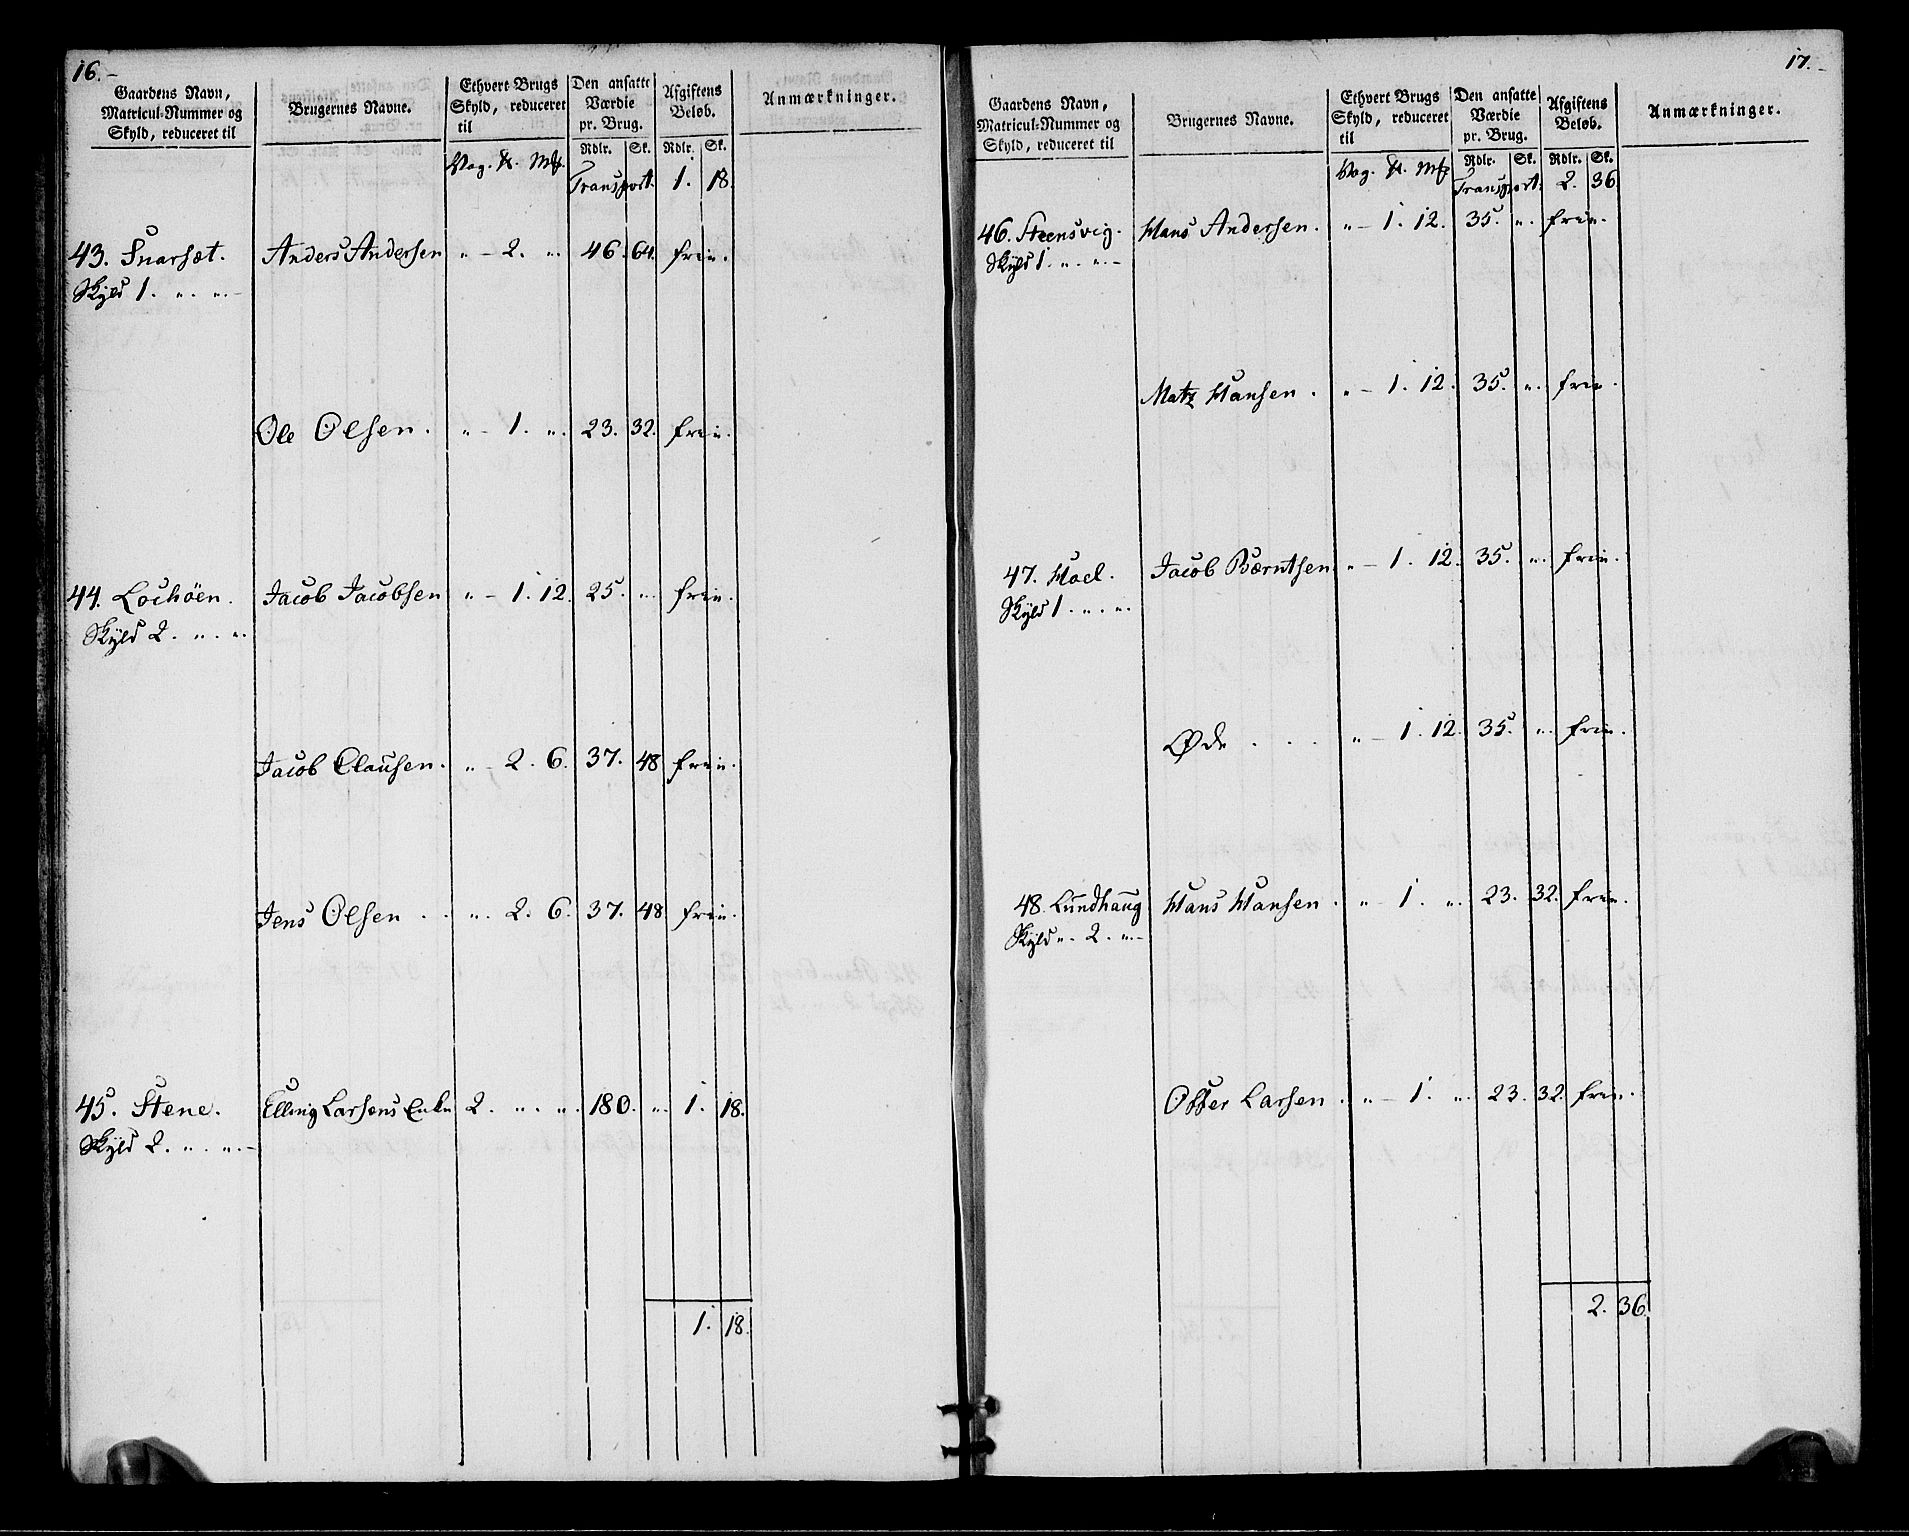 16.
Gaardens Navn, Matricul-Nummer og Skyld, reduceret til | Brugernes Navne. | Ethvert Brugs Skyld, reduceret til | Den ansatte Værdie pr. Brug. | Afgiftens Beløb. | Anmærkninger.
Rdlr. Sk. Rdlr. Sk.
Transport. 1. 18.
43. Snarsæt. Anders Andersen „ - 2. „ 46. 64. frie.
Skyld 1. „ „ -
Ole Olsen. „ - 1. „ 23. 32. frie.
44. Lochöen. Jacob Jacobsen „ - 1. 12. 25. „ frie.
Skyld 2. „ „
Jacob Clausen. „ - 2. 6. 37. 48 frie.
Jens Olsen . . „ 2. 6. 37. 48 frie.
45. Stene. Elling Larsens Enke 2. „ „ 180. „ 1. 18.
Skyld 2. „ „ -
1. 18.
17.
Gaardens Navn, Matricul-Nummer og Skyld, reduceret til | Brugernes Navne. | Ethvert Brugs Skyld, reduceret til | Den ansatte Værdie pr. Brug. | Afgiftens Beløb. | Anmærkninger.
Rdlr. Sk. Rdlr. Sk.
Transport. 2. 36.
46. Steensvig. Hans Andersen. „ - 1. 12. 35. „ frie.
Skyld 1. „ „ -
Matz Hansen . „ - 1. 12. 35. „ frie.
47. Hoel. Jacob Bærntsen „ - 1. 12. 35. „ frie.
Skyld 1. „ „.
Øde . . . „ - 1. 12. 35. „ frie.
48. Lundhaug Hans Hansen . „ - 1. „ 23. 32. frie.
Skyld „. 2. „ -
Otter Larsen . „ - 1. „ 23. 32. frie.
2. 36.